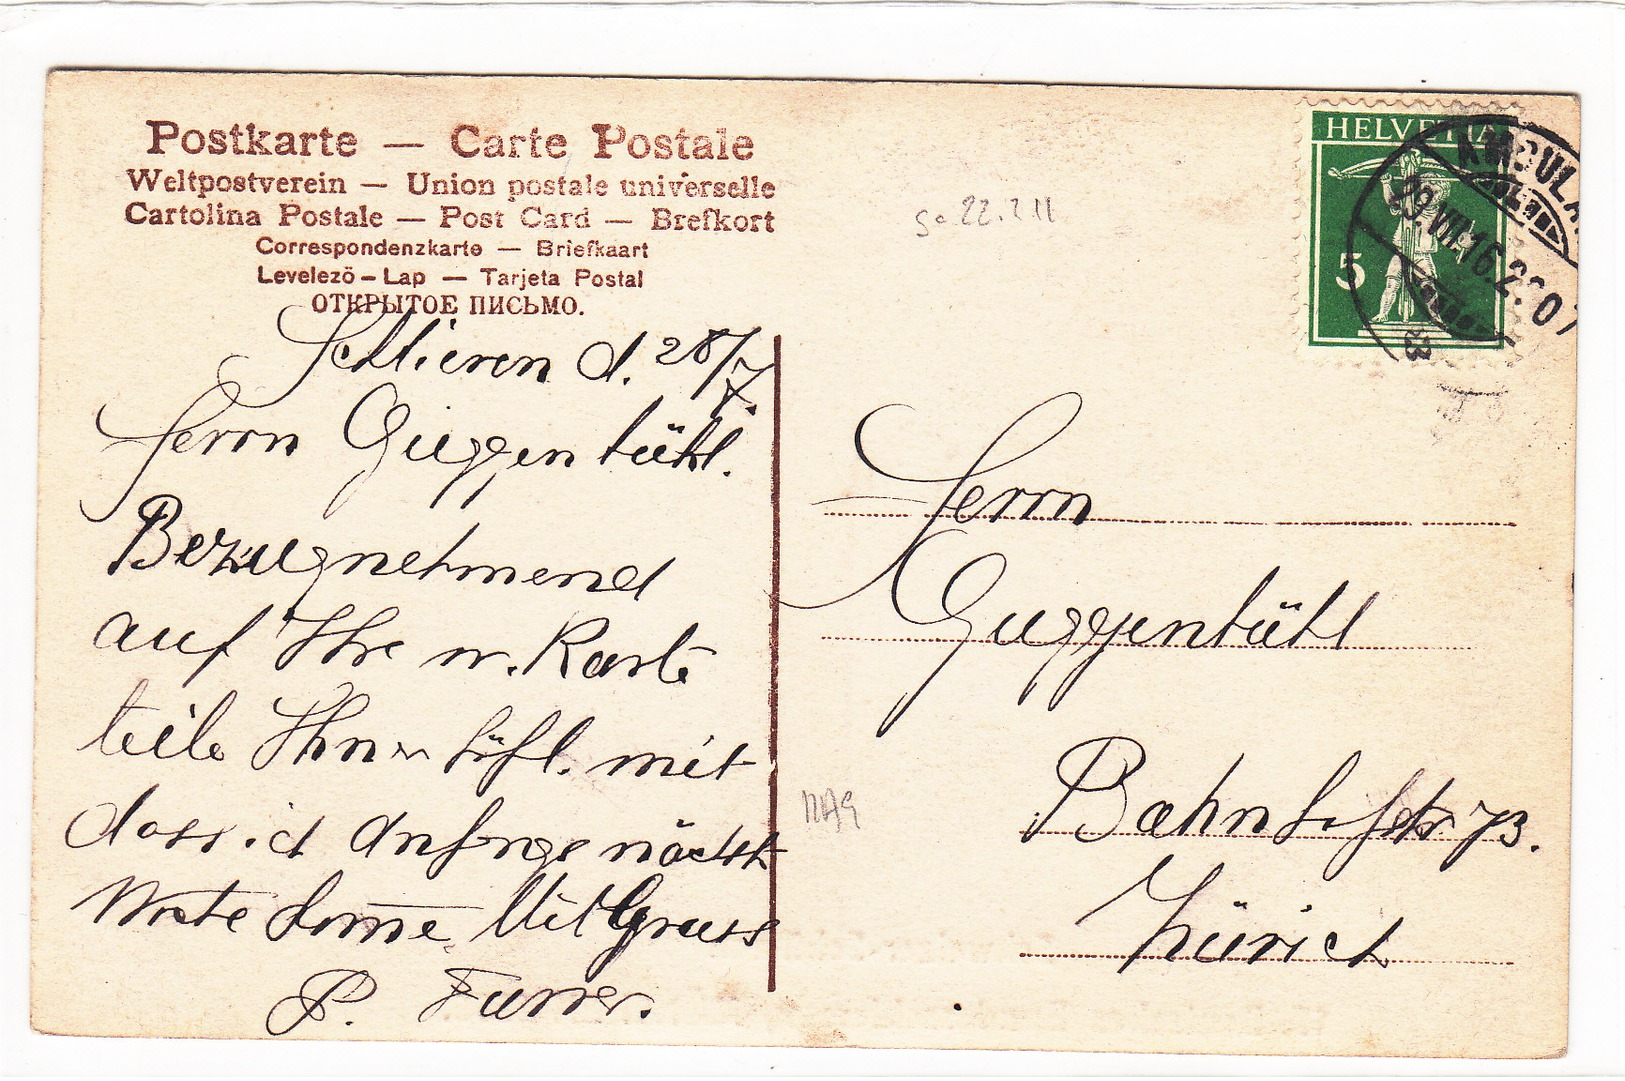 Postkarte — Carte Postale
Weltpostverein — Union postale universelle
Cartolina Postale — Post Card — Brefkort
Correspondenzkarte — Briefkaart
Levelezö-Lap — Tarjeta Postal
ОТКРЫТОЕ ПИСЬМО.
Schlieren d. 28/7.
Herrn Guggenbühl.
Bezugnehmend
auf Ihre w. Karte
teile Ihnen höfl. mit
dass ich Anfangs nächst
Woche komme. Mit Gruss
P. Furrer.
22.2.11
HELVETIA
5
AMBULANT
29.VII.16.2
Herrn
Guggenbühl
Bahnhofstr. 73.
Zürich